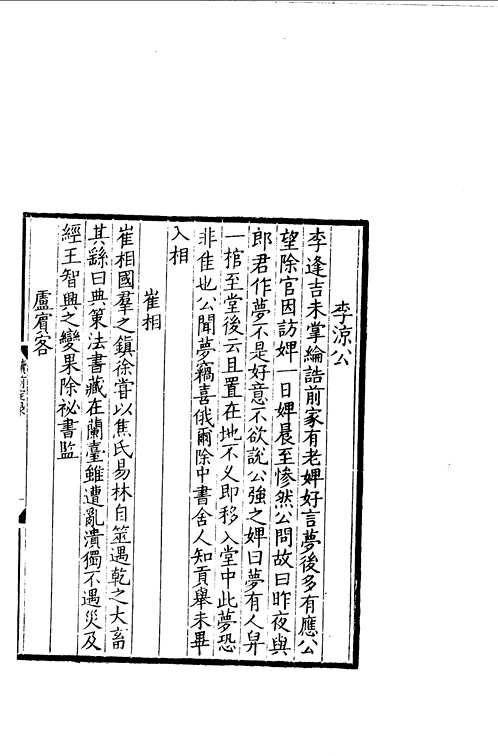 李涼公
李逢吉未掌綸誥前家有老婢好言夢後多有應公
望除官因訪婢一日婢晨至慘然公問故曰昨夜與
郎君作夢不是好意不欲說公強之婢曰夢有人舁
一棺至堂後云且置在地不乆即移入堂中此夢恐
非佳也公聞夢竊喜俄爾除中書舍人知貢舉未畢
入相
崔相
崔相國羣之鎮徐嘗以焦氏易林自筮遇乾之大畜
其繇曰典策法書藏在蘭臺雖遭亂潰獨不遇災及
經王智興之變果除祕書監
盧賓客